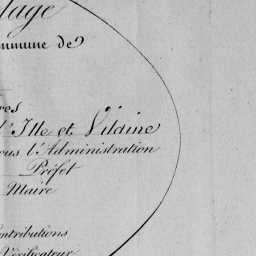 lage
ommune de
res
d'Ille et Vilaine
ous l'Administration
Préfet
Maire
ntributions
Vérificateur